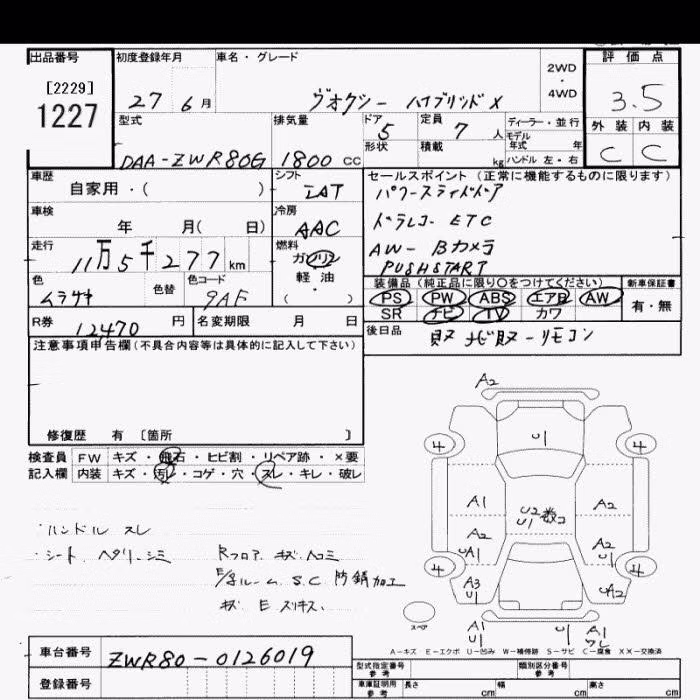 出品番号 初度登録年月 車名・グレード 2WD・4WD 評価点
[2229]
1227
27 6月 ヴォクシー ハイブリッドX 3.5
型式 排気量 ドア 定員 ディーラー・並行 外装 内装
DAA-ZWR80G 1800cc 5 7人 モデル年式 年 C C
形状 積載 kg ハンドル 左・右
車歴 シフト セールスポイント(正常に機能するものに限ります)
自家用・( ) IAT パワースライドドア
車検 冷房 ドラレコー ETC
年 月( 日) AAC AW- Bカメラ
走行 燃料 PUSHSTART
11万5千277km ガソリン 軽油・( )
色 色替 色コード 装備品(純正品に限り○をつけてください) 新車保証書
ムラサキ 9AF PS PW ABS エアB AW 有・無
SR ナビ TV カワ
R券 12470円 名変期限 月 日 後日品 取 ナビ取-リモコン
注意事項申告欄(不具合内容等は具体的に記入して下さい)
修復歴 有 〔箇所 〕
検査員 FW キズ・飛石・ヒビ割・リペア跡・×要
記入欄 内装 キズ・汚レ・コゲ・穴・スレ・キレ・破レ
・ハンドル スレ
・シート ヘタリ-シミ Rフロア キズ ヘコミ
E/gルーム S.C 防錆加工
キズ E ズリキズ.
A2
4 U1 4
A1 U2 U1 数コ A2
A2 UA1 A2 U1
4 A3 U1 UA2 4
スペア A1 U1 U1 A1
A-キズ E-エクボ U-凹み W-補修跡 S-サビ C-腐食 XX-交換済
車台番号 ZWR80-0126019
登録番号
型式指定番号 参考 類別区分番号 参考
車庫証明用 参考 長さ cm 幅 cm 高さ cm